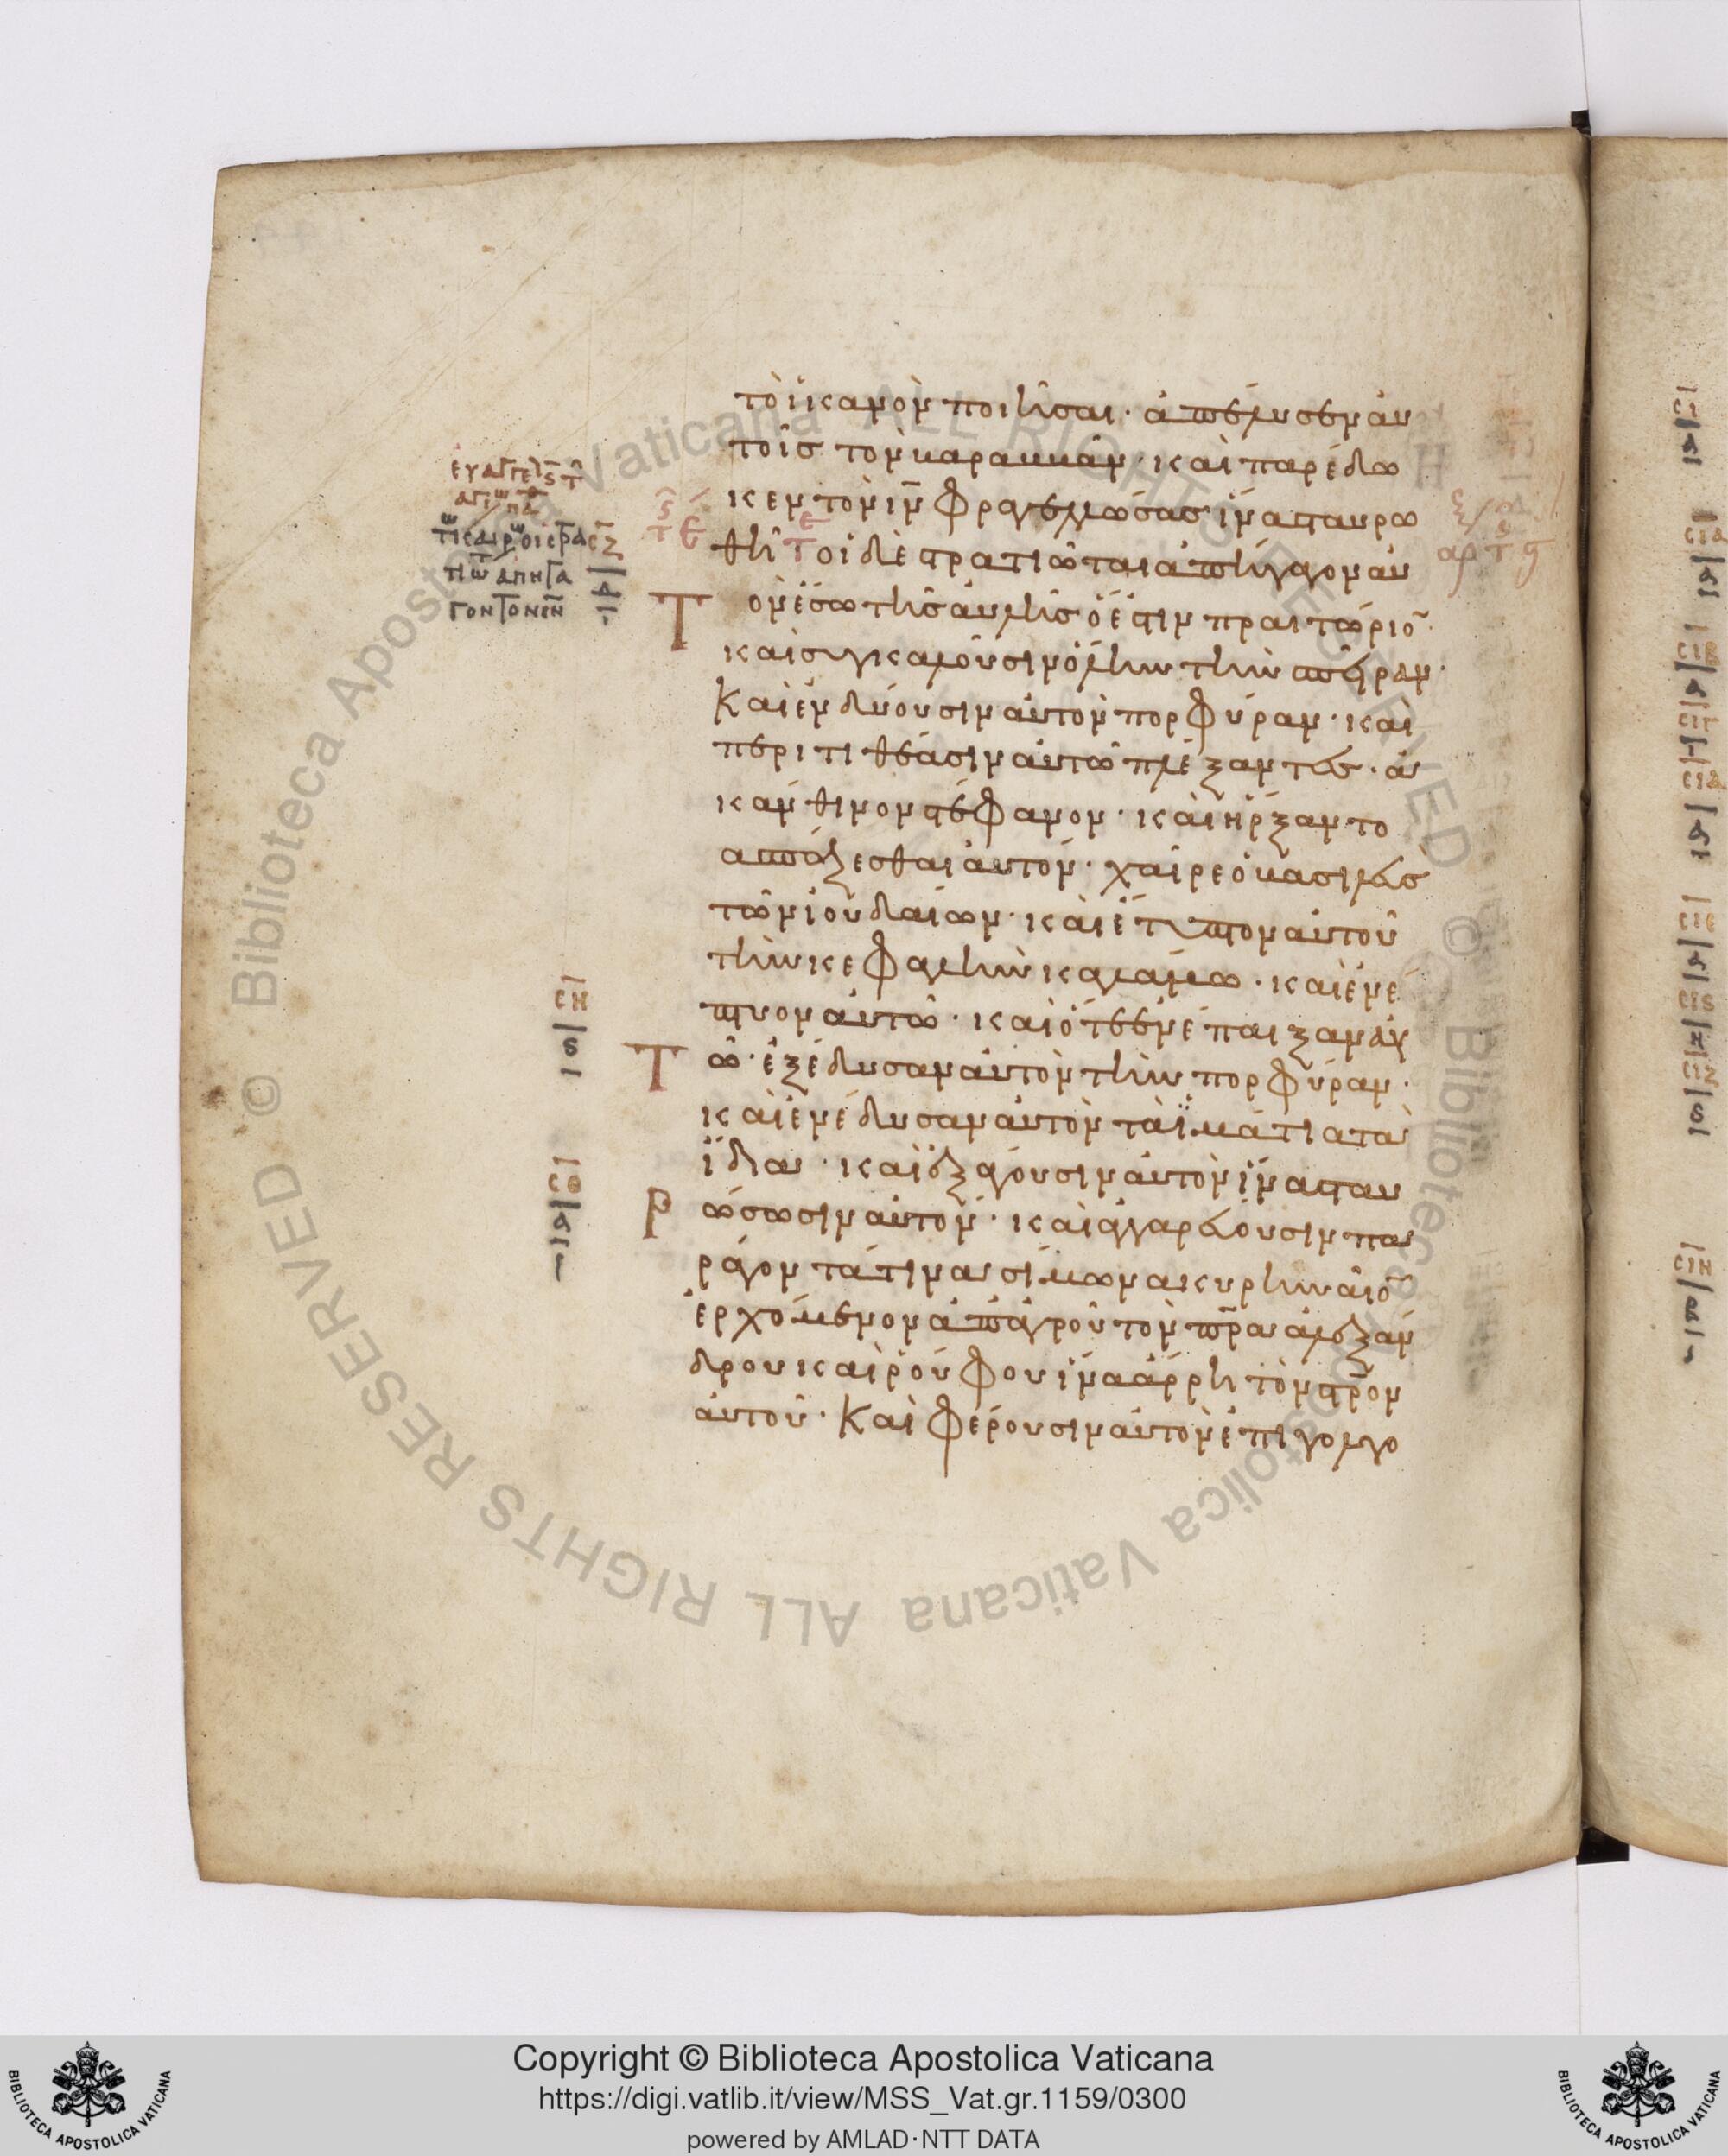 τὸ ἱκανὸν ποιῆσαι· ἀπέλυσεν αὐ
τοῖς τὸν βαραββᾶν· καὶ παρέδω
κεν τὸν ιν̅ φραγελλώσας ἵνα σταυρω
θῆ οἱ δὲ στρατιῶται ἀπήγαγον αὐ
Τ ὸν ἔσω τῆς αὐλῆς ὅ ἐστιν πραιτώριο̅·
καὶ συγκαλοῦσιν ὅλην τὴν σπεῖραν·
Καὶ ἐνδύουσιν αὐτὸν πορφύραν· καὶ
περιτιθέασιν αὐτῶ πλέξαντες· ἀ
κάνθινον στέφανον· καὶ ἤρξαντο
ἀσπάζεσθαι αὐτόν· χαῖρε ὁ βασιλεὺς
τῶν ἰουδαίων· καὶ ἔτυπτον αὐτοῦ
τὴν κεφαλὴν καλάμω· καὶ ἐνέ
πτυον αὐτῶ· καὶ ὅτε ἐνέπαιξαν αὐ
Τ ῶ· ἐξέδυσαν αὐτὸν τὴν πορφύραν·
καὶ ἐνέδυσαν αὐτὸν τὰ ἱμάτια τὰ
ἴδια· καὶ ἐξάγουσιν αὐτὸν ἵνα σταυ
Ρ ώσωσιν αὐτόν· καὶ ἀγγαρεύουσιν πα
ράγοντά τινα σίμωνα κυρηναῖο̅
ἐρχόμενον ἀπ ἀγροῦ τὸν πρ̅α ἀλεξάν
δρου καὶ ῥούφου ἵνα ἄρρη τὸν στρ̅ον
αὐτοῦ· Καὶ φέρουσιν αὐτὸν ἐπὶ γολγο
CΗ
CΘ
Copyright © Biblioteca Apostolica Vaticana
https://digi.vatlib.it/view/MSS_Vat.gr.1159/0300
powered by AMLAD·NTT DATA